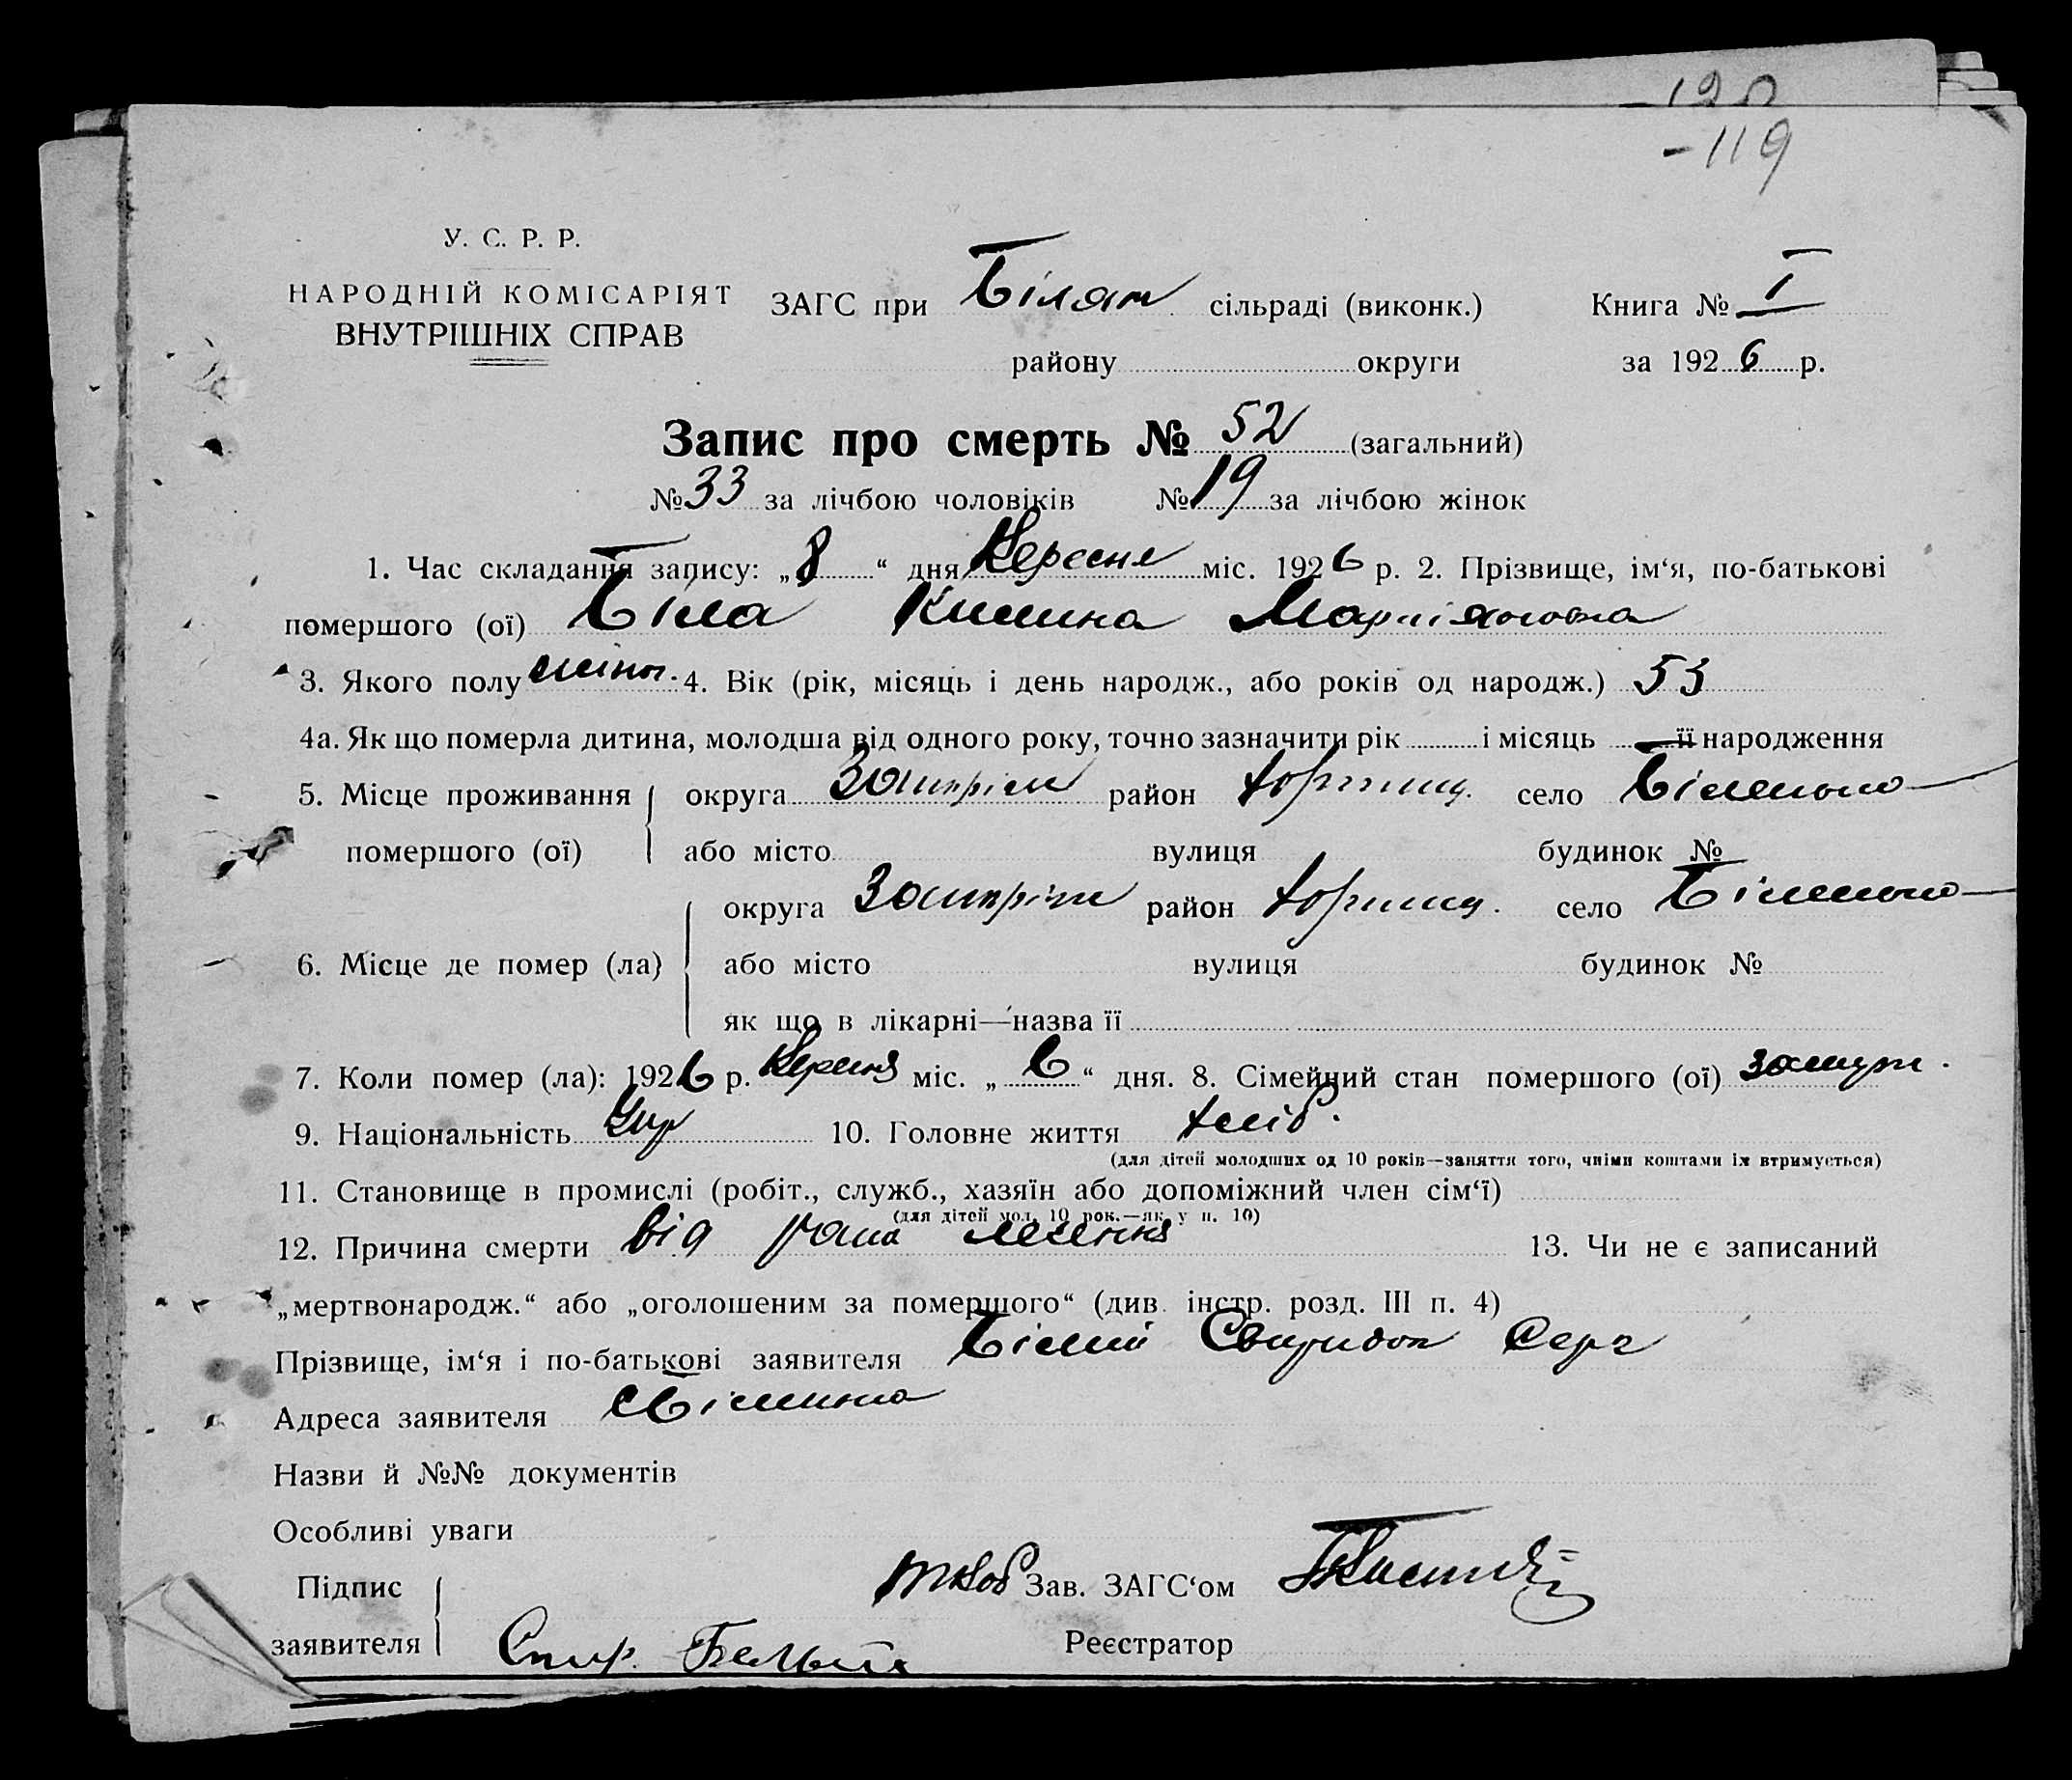 -120
-119
У. С. Р. Р.
НАРОДНІЙ КОМІСАРІЯТ
ВНУТРІШНІХ СПРАВ
ЗАГС при Білян сільраді (виконк.) Книга № I
району округи за 1926 р.
Запис про смерть № 52 (загальний)
№ 33 за лічбою чоловіків № 19 за лічбою жінок
1. Час складання запису: „8“ дня Вересня міс. 1926 р. 2. Прізвище, ім‘я, по-батькові
помершого (ої) Біла Килина
3. Якого полу жіноч. 4. Вік (рік, місяць і день народж., або років од народж.) 53
4а. Як що померла дитина, молодша від одного року, точно зазначити рік і місяць її народження
5. Місце проживання округа Запоріж район Хортиц. село Біленько
помершого (ої) або місто вулиця будинок №
округа Запоріж район Хортиц. село Біленько
6. Місце де помер (ла) або місто вулиця будинок №
як що в лікарні—назва її
7. Коли помер (ла): 1926 р. Вересня міс. „6“ дня. 8. Сімейний стан помершого (ої) замуж.
9. Національність Укр 10. Головне життя хліб.
(для дітей молодших од 10 років—заняття того, чиїми коштами їх втримується)
11. Становище в промислі (робіт., служб., хазяїн або допоміжний член сім‘ї)
(для дітей мол. 10 рок.—як у п. 10)
12. Причина смерти від рана 13. Чи не є записаний
„мертвонародж.“ або „оголошеним за помершого“ (див. інстр. розд. III п. 4)
Прізвище, ім‘я і по-батькові заявителя Білий Свиридон Серг
Адреса заявителя
Назви й №№ документів
Особливі уваги
Підпис Зав. ЗАГС‘ом
заявителя Спир. Белый Реєстратор